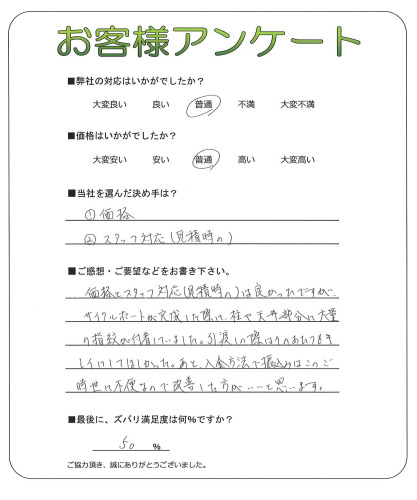 お客様アンケート
■弊社の対応はいかがでしたか?
大変良い 良い 普通 不満 大変不満
■価格はいかがでしたか?
大変安い 安い 普通 高い 大変高い
■当社を選んだ決め手は?
①価格
②スタッフ対応(見積時の)
■ご感想・ご要望などをお書き下さい。
価格とスタッフ対応(見積時の)は良かったですが、
サイクルポートが完成した際に、柱や天井部分に大量
の指紋が付着していました。引渡しの際はそのあたりもキ
レイにしてほしかった。あと、入金方法で振込みはこのご
時世に不便なので改善した方がいいと思います。
■最後に、ズバリ満足度は何%ですか?
50 %
ご協力頂き、誠にありがとうございました。